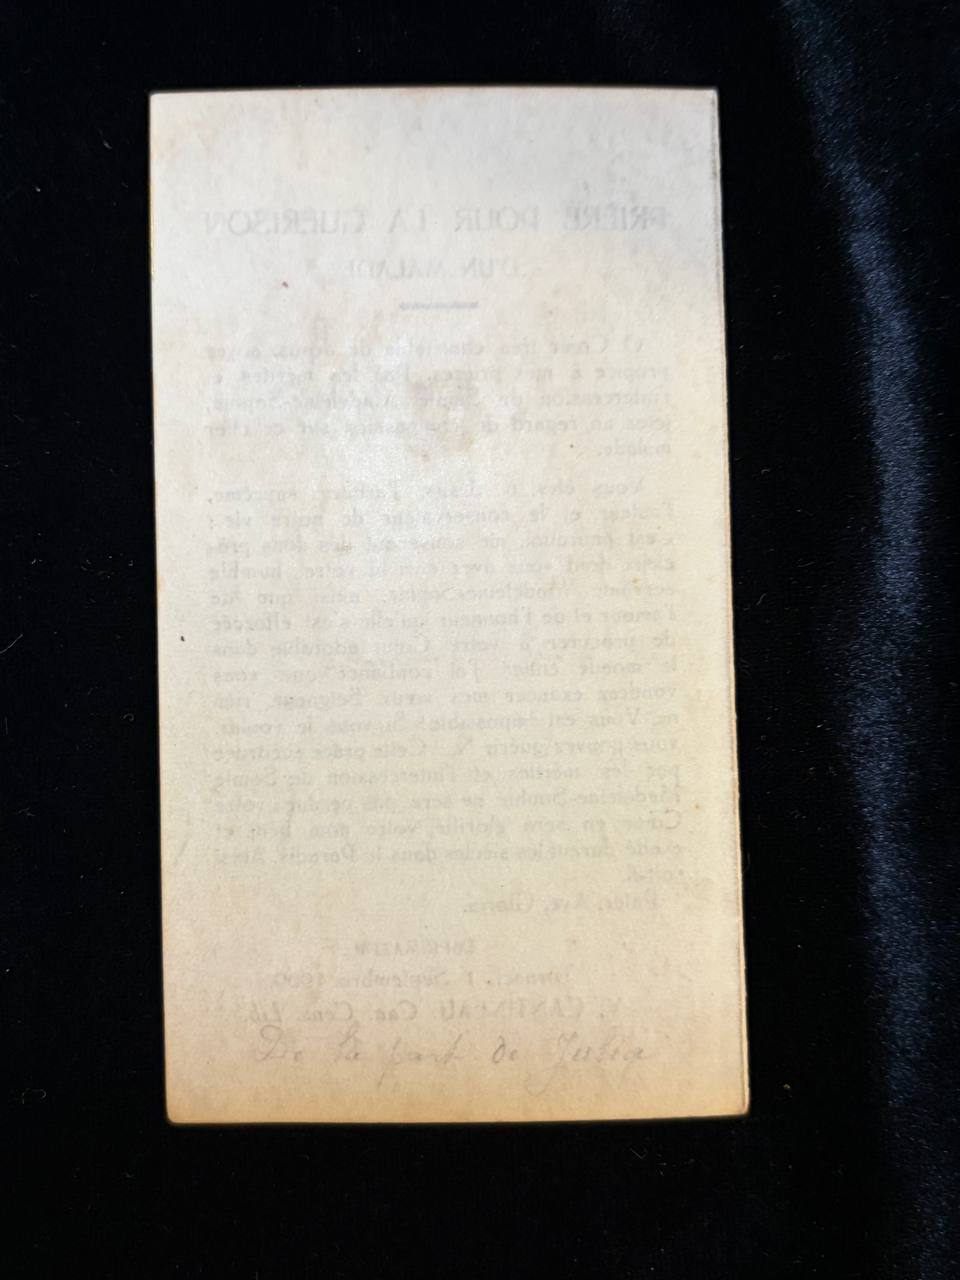 PRIÈRE POUR LA GUÉRISON
D'UN MALADE
O Cœur très charitable de Jésus, soyez
propice à mes prières. Par les mérites et
l'intercession de Sainte Madeleine-Sophie,
jetez un regard de compassion sur ce cher
malade.
Vous êtes, ô Jésus, suprême,
l'auteur et le conservateur de notre vie ;
c'est pourquoi, me souvenant des dons pré-
cieux dont vous avez enrichi votre humble
servante Madeleine-Sophie, ainsi que de
l'amour et de l'honneur qu'elle s'est efforcée
de procurer à votre Cœur adorable dans
le monde entier, j'ai confiance que vous
voudrez exaucer mes vœux. Seigneur, rien
ne Vous est impossible! Si vous le voulez,
vous pouvez guérir N... Cette grâce accordée
par les mérites et l'intercession de Sainte
Madeleine-Sophie ne sera pas perdue; votre
Cœur en sera glorifié, votre nom béni et
exalté durant les siècles dans le Paradis. Ainsi
soit-il.
Pater, Ave, Gloria.
IMPRIMATUR
Tornaci, 1 Septembris 1909
V. CANTINEAU Can. Cens. Lib.
De la part de Julia